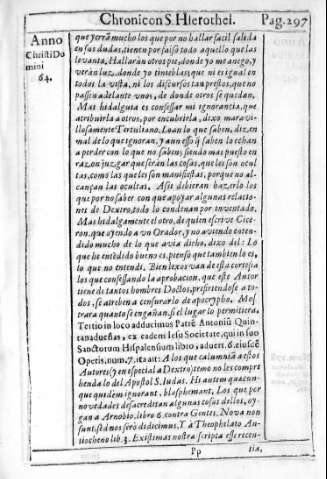 Chronicon S. Hierothei. Pag.297
Anno
Christi Do
mini
64.
que yerrã mucho los que por no hallar facil salida
en sus dudas, tienen por falso todo aquello que las
levanta, Hallaràn otros pie, donde yo me anego, y
veràn luz, donde yo tinieblas, que ni es igual en
todos la vista, ni los discursos tan prestos, que no
passen adelante unos, de donde otros se quedan.
Mas hidalguia es confessar mi ignorancia, que
atribuirla a otros, por encubrirla, dixo maravi-
llosamente Tertuliano. Loan lo que saben, dize, en
mal de lo que ignoran, y aun esso q̃ saben lo echan
a perder con lo que no saben; siendo mas puesto en
razon, juzgar que seràn las cosas, que les son ocul
tas, como las que les son manifiestas, porque no al-
cançan las ocultas. Assi debieran hazerlo los
que por no saber con que apoyar algunas relacio-
nes de Dextro, todo lo condenan por inventado.
Mas hidalgamente el otro, de quien escrive Cice-
ron, que oyendo a un Orador, y no aviendo enten-
dido mucho de lo que avia dicho, dixo del: Lo
que he entẽdido bueno es, pienso que tambien lo es,
lo que no entendi. Bien lexos van de esta cortesia
los que confessando la aprobacion, que este Autor
tiene de tantos hombres Doctos, prefiriendose a to-
dos, se atreben a censurarlo de apocrypho. Mos
trara quanto se engañan, si el lugar lo permitiera.
Tertio in loco adducimus Patrẽ Antoniũ Quin-
tanadueñas, ex eadem Iesu Societate, qui in suo
Sanctorum Hispalensium libro, advert. 6. eiusdẽ
Operis, num. 7. ita ait: A los que calumniã a estos
Autores (y en especial a Dextro) temo no les compre
henda lo del Apostol S. Iudas. Hi autem quæcun-
que quidem ignorant, blasphemant. Los que por
novedades desacreditan algunas cosas dellos, oy-
gan a Arnobio, libro 6. contra Gentes. Nova non
sunt, sed nos serò dìdicimus. Y à Theophilato An-
tiocheno lib. 3. Existimas nostra scripta esse recen-
Pp tia,